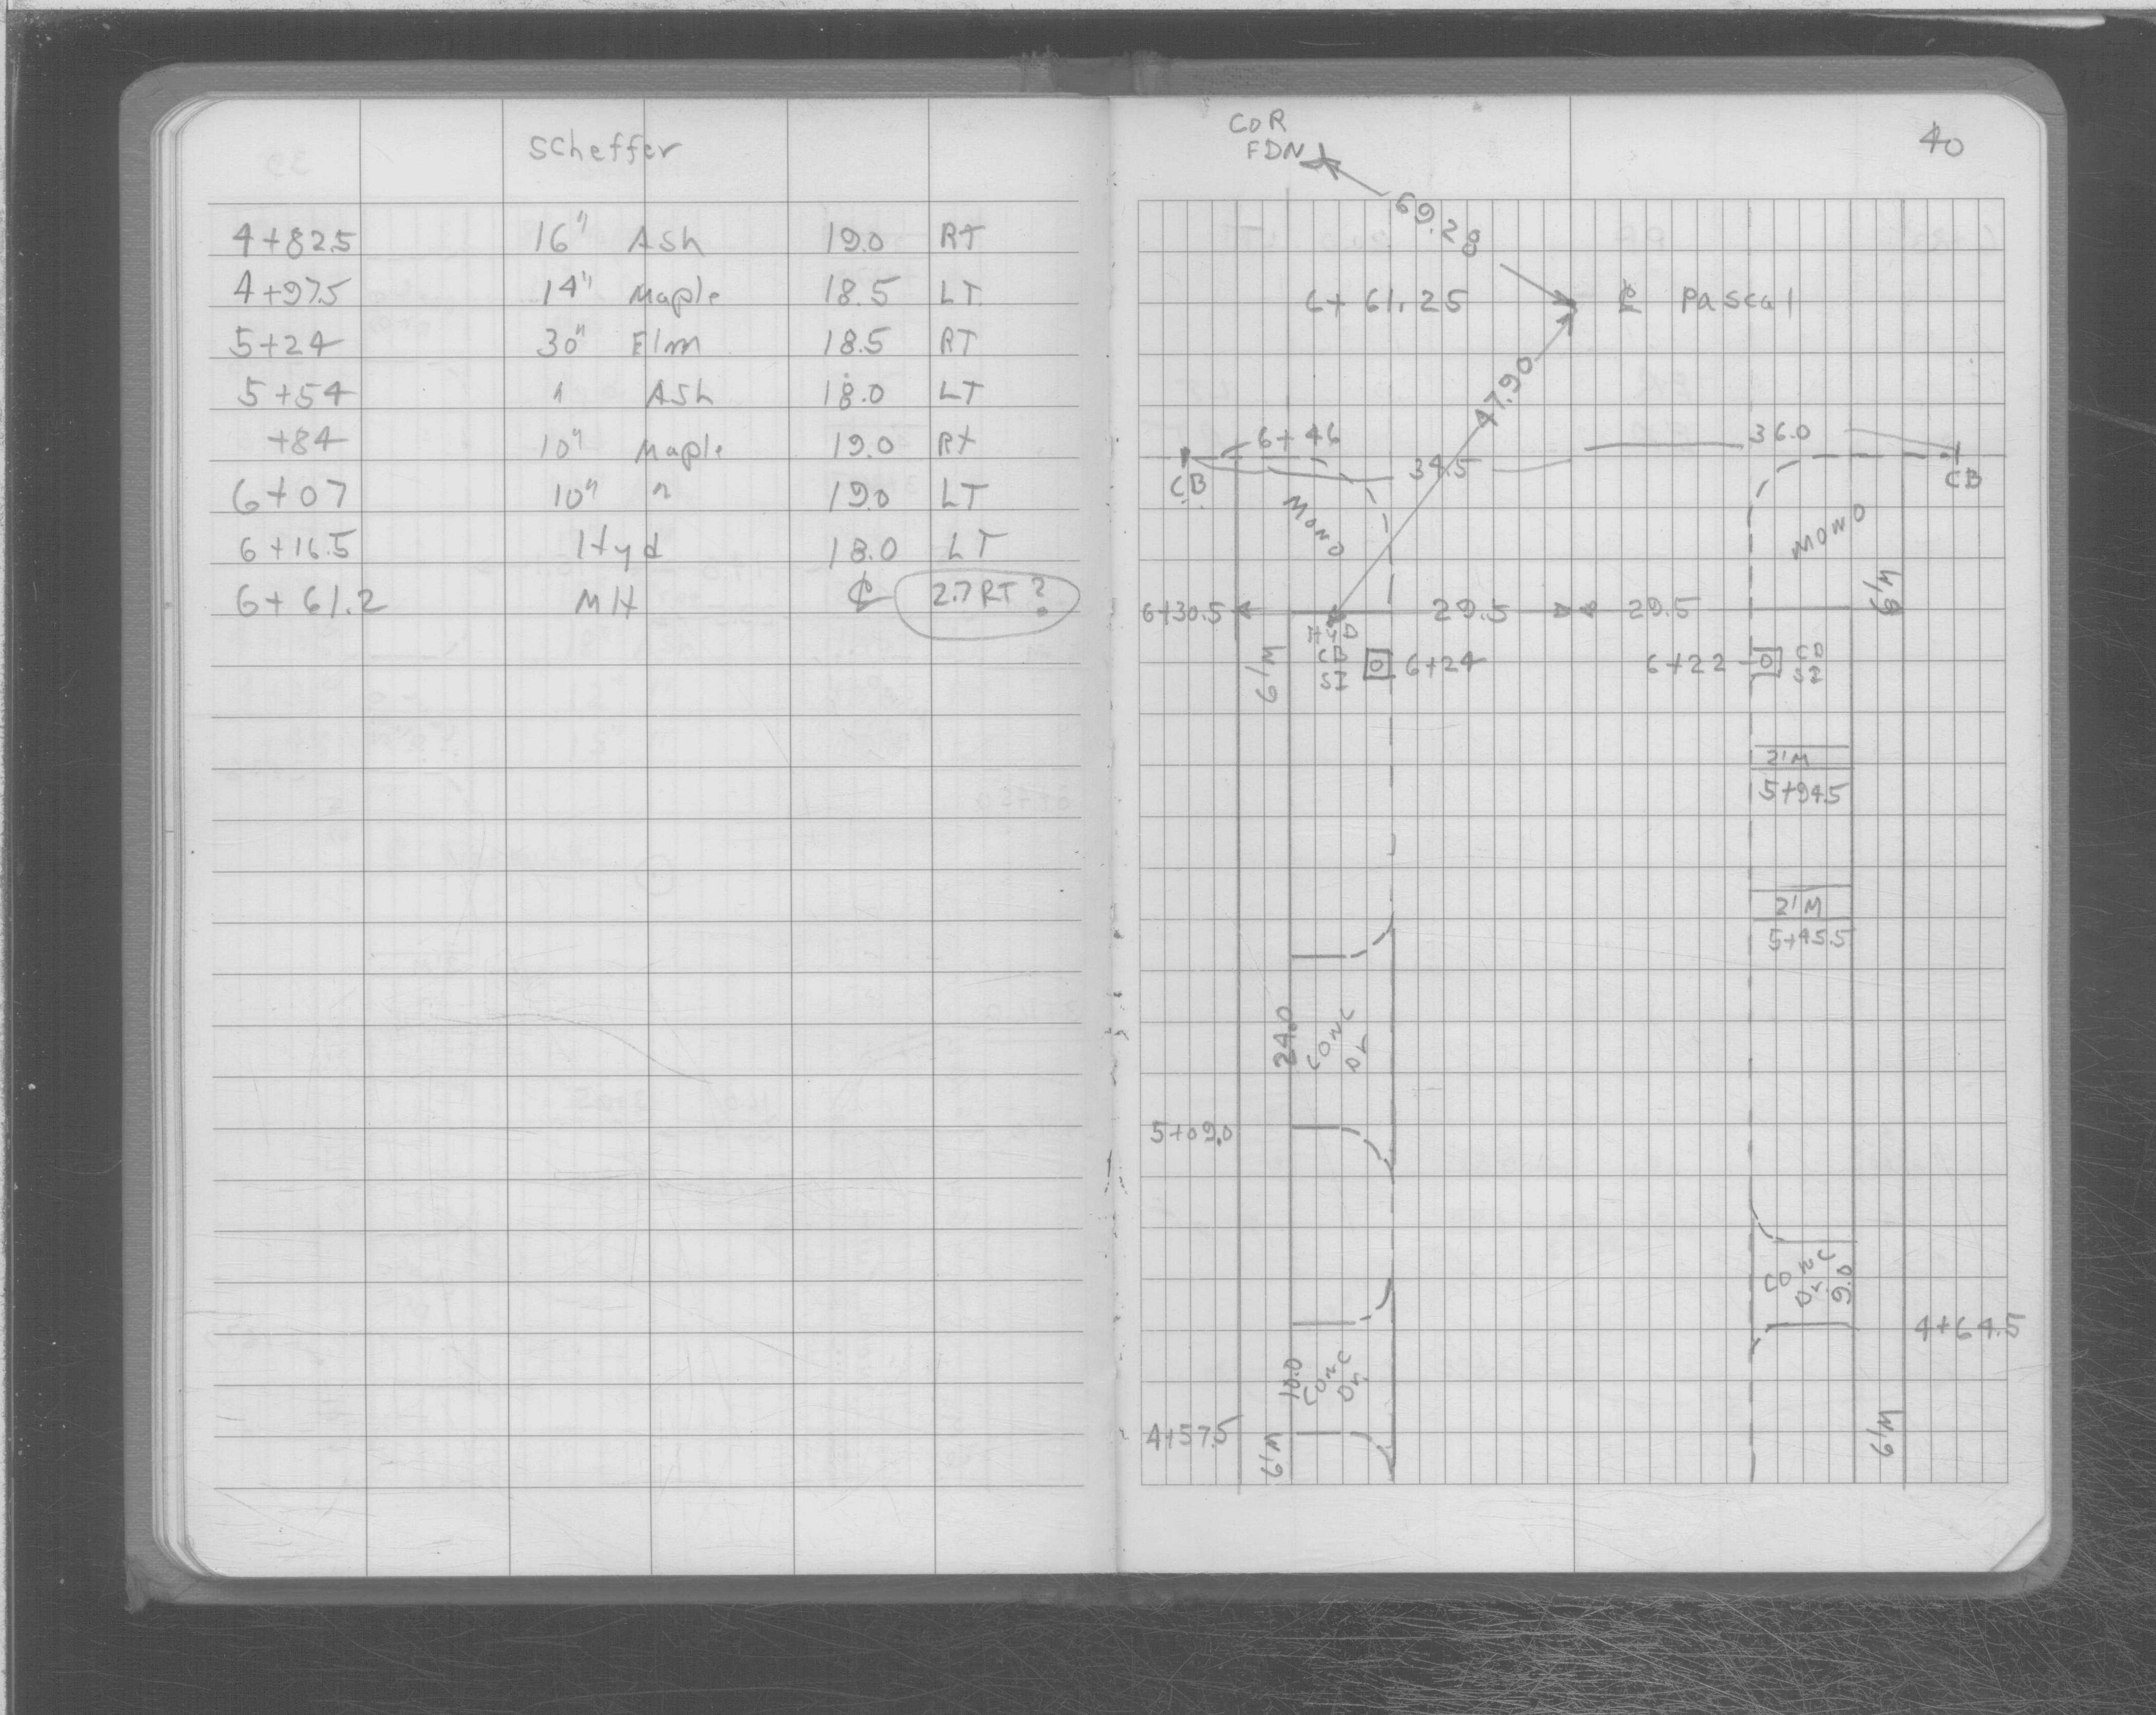 Scheffer
4+82.5 16" Ash 19.0 RT
4+97.5 14" Maple 18.5 LT
5+24 30" Elm 18.5 RT
5+54 " Ash 18.0 LT
+84 10" Maple 19.0 Rt
6+07 10" " 19.0 LT
6+16.5 Hyd 18.0 LT
6+61.2 MH ₵ 2.7 RT ?
40
COR
FDN
69.28
6+61.25 ℄ Pascal
47.90
6+46 36.0
34.5
CB CB
MONO MONO
6'M
6+30.5 29.5 29.5
HYD
CB
SI
6+24 6+22 CB
SI
6'M
2'M
5+94.5
2'M
5+45.5
24.0
CONC
Dr
5+09.0
CONC
Dr
9.0
4+64.5
10.0
CONC
Dr
4+57.5
6'M 6'M